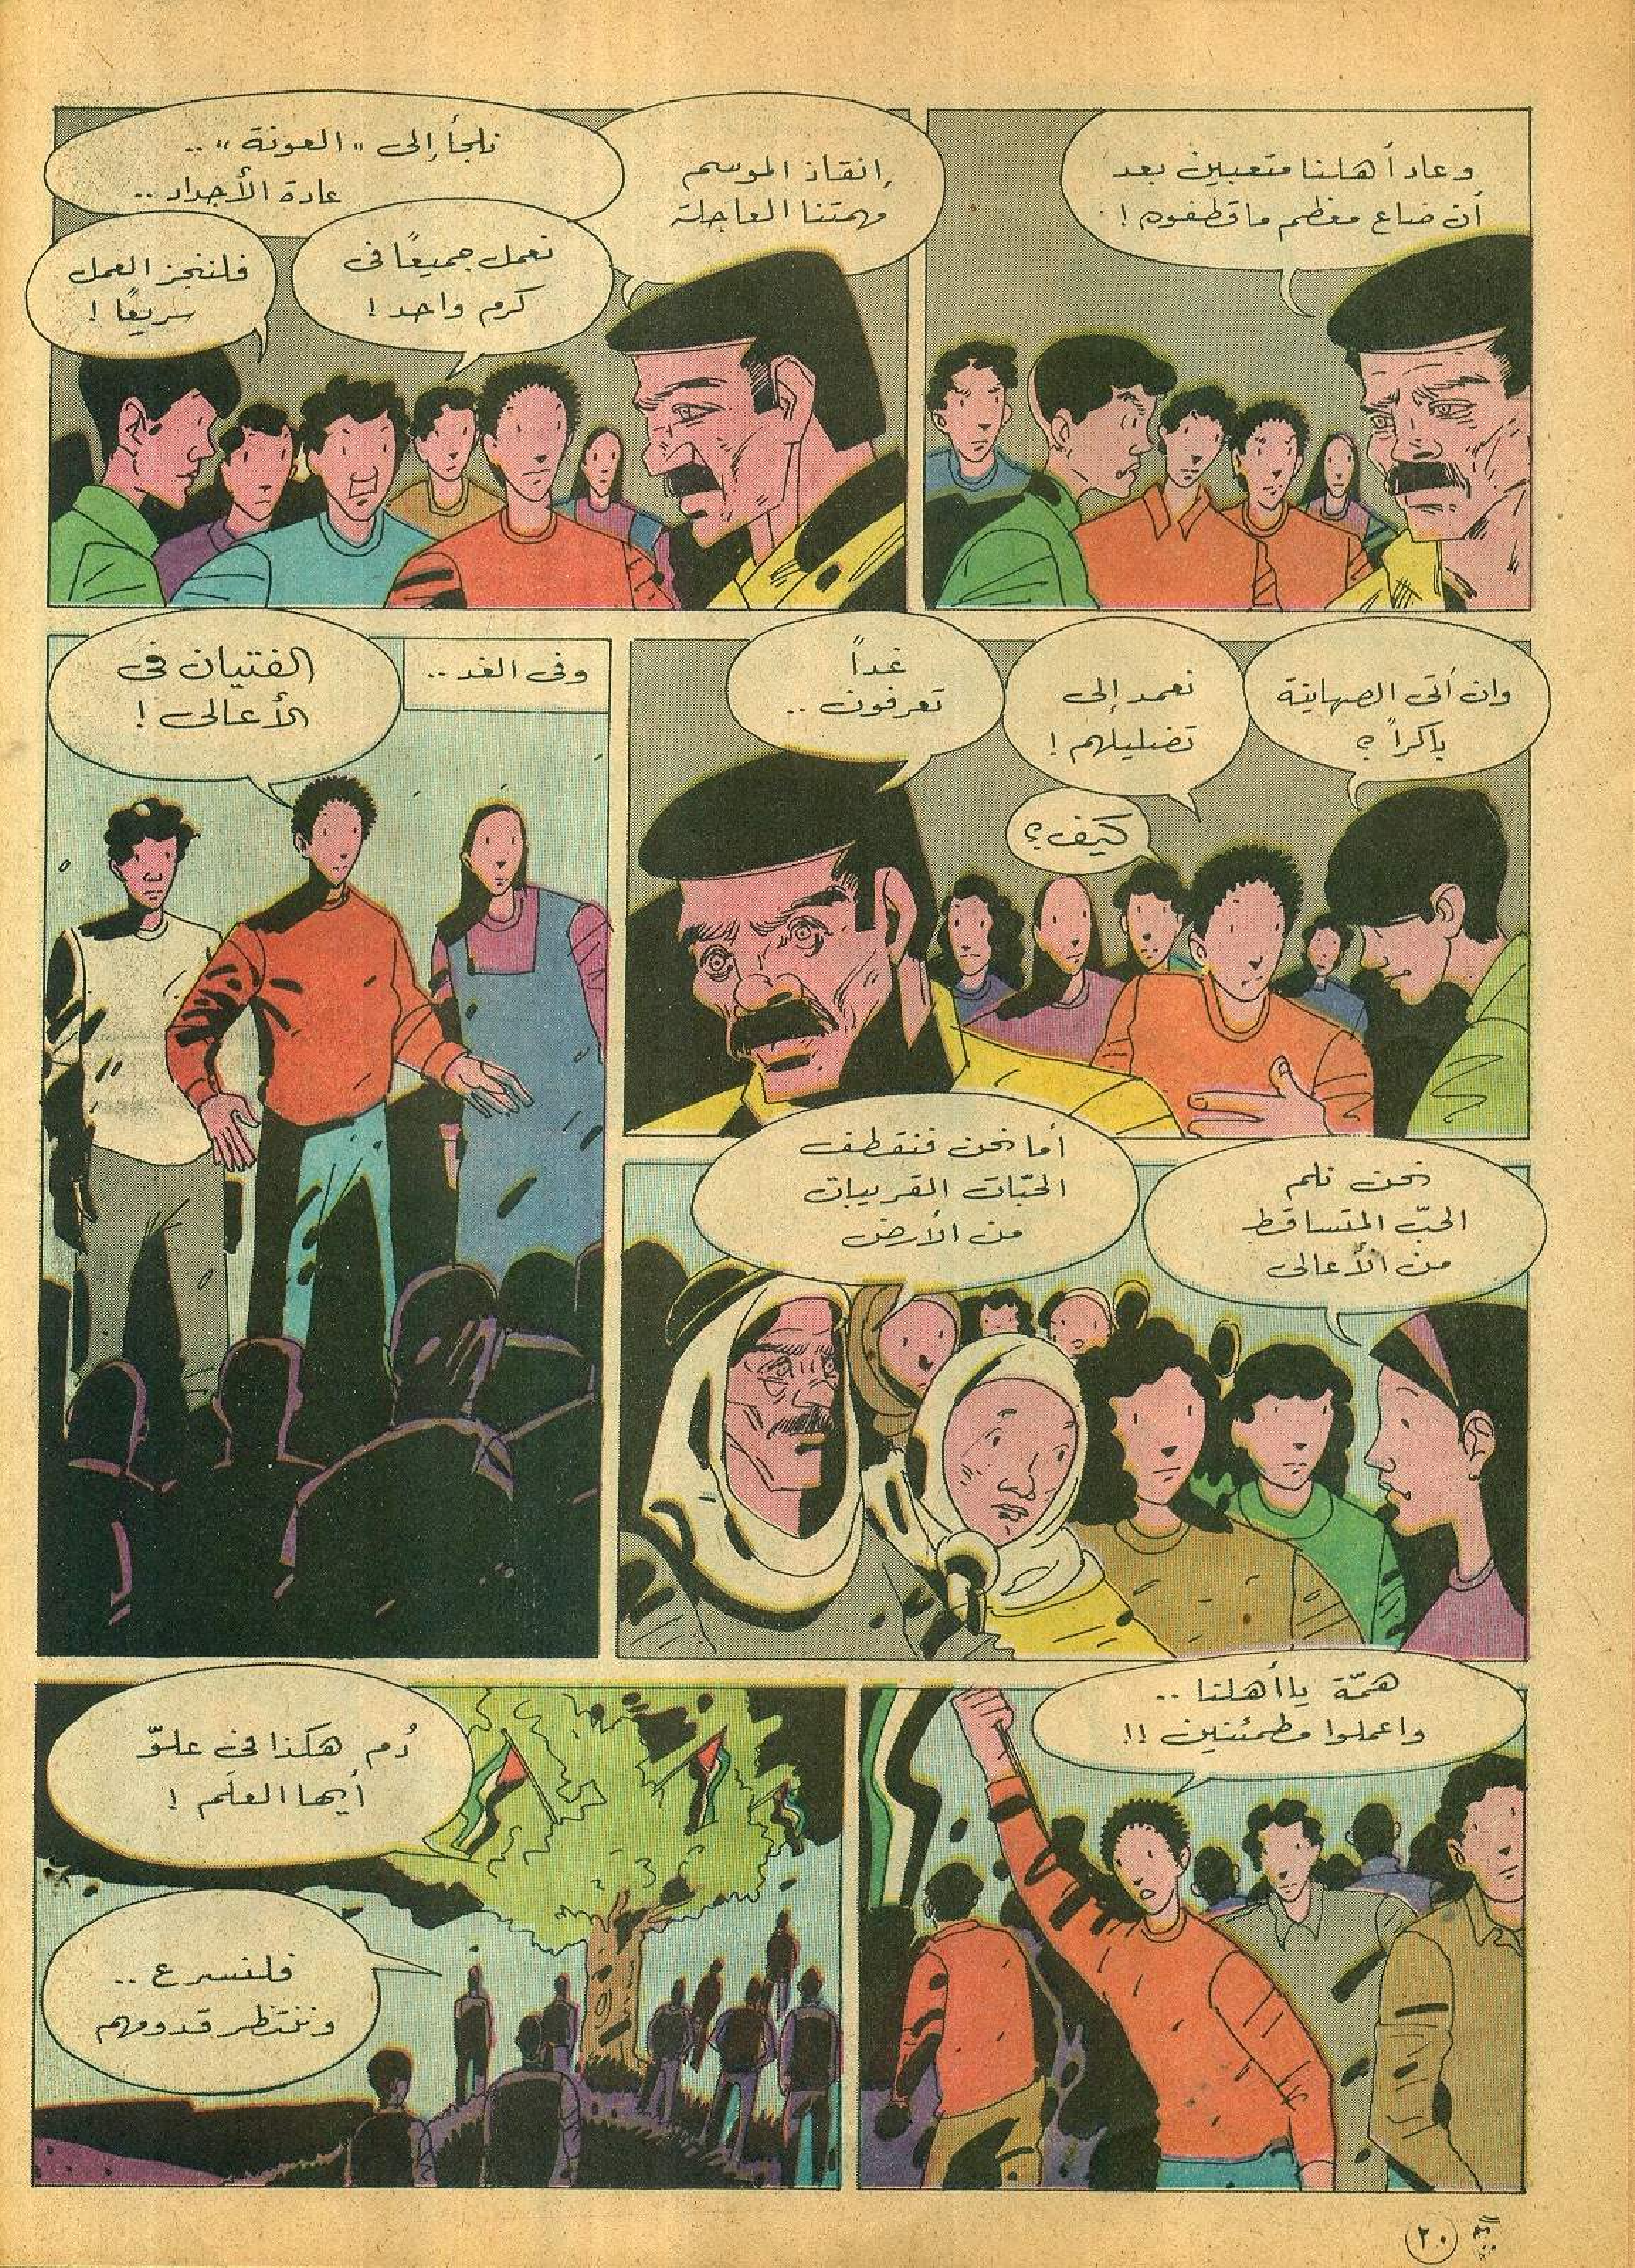 وعاد أهلنا متعبين بعد
أن ضاع معظم ما قطفوه !
إنقاذ الموسم
مهمتنا العاجلة
نلجأ إلى "العونة" ..
عادة الأجداد ..
نعمل جميعًا في
كرم واحد !
فلننجز العمل
سريعًا !
وان أتى الصهاينة
باكراً ؟
نعمد إلى
تضليلهم !
كيف ؟
غداً
تعرفون ..
وفى الغد ..
الفتيان في
الأعالى !
نحن نلم
الحبّ المتساقط
من الأعالى
أما نحن فنقطف
الحبّات القريبات
من الأرض
همّة يا أهلنا ..
واعملوا مطمئنين !!
دُم هكذا في علوّ
أيها العلَم !
فلنسرع ..
وننتظر قدومهم
٢٠